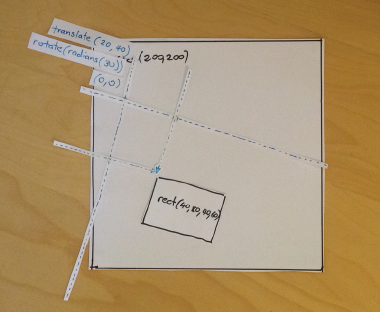 translate (20, 40)
rotate(radians(30))
(200,200)
(0,0)
rect(40,80,90,60)